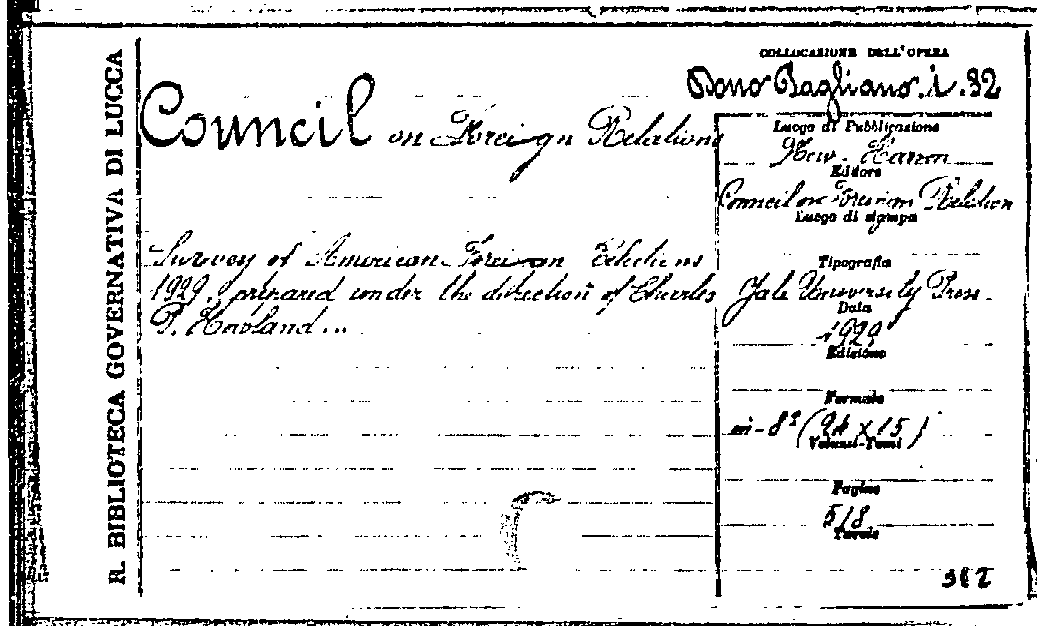 R. BIBLIOTECA GOVERNATIVA DI LUCCA
Council on Foreign Relations
Survey of American Foreign Relations
1929, prepared under the direction of Charles
P. Howland...
COLLOCAZIONE DELL'OPERA
Dono Pagliano. i. 32
Luogo di Pubblicazione
New-Haven
Editore
Council on Foreign Relation
Luogo di stampa
Tipografia
Yale University Press.
Data
1929
Edizione
Formato
in-8º (24 x 15)
Volumi-Tomi
Pagine
518.
Tavole